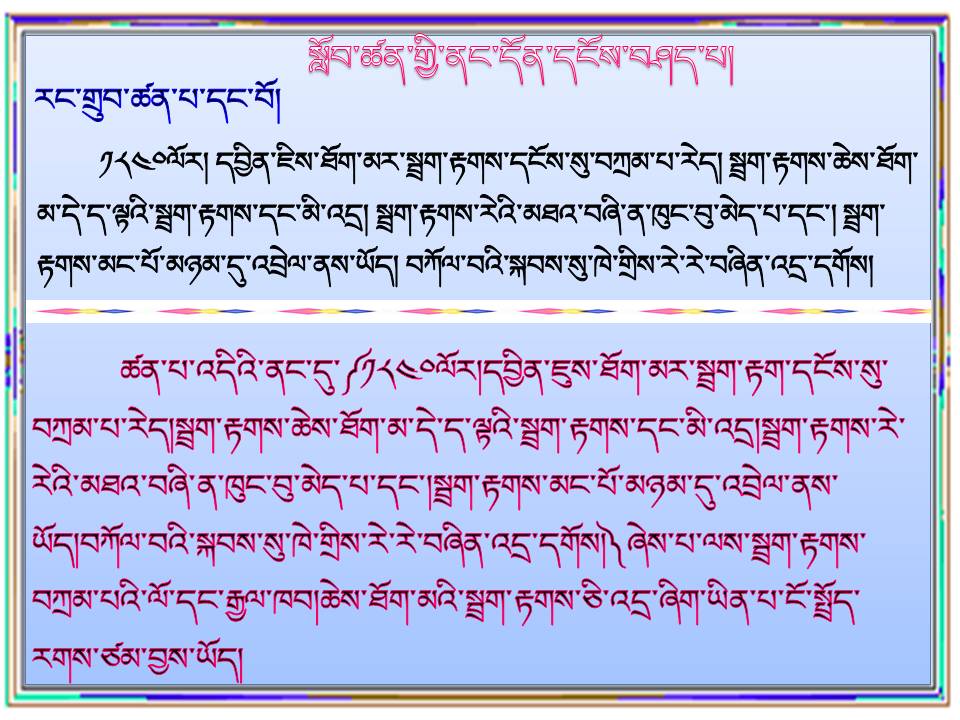 སློབ་ཚན་གྱི་ནང་དོན་དངོས་བཤད་པ།
རང་གྲུབ་ཚན་པ་དང་པོ།
༡༨༤༠ལོར། དབྱིན་ཇིས་ཐོག་མར་སྦྲག་རྟགས་དངོས་སུ་བཀྲམ་པ་རེད། སྦྲག་རྟགས་ཆེས་ཐོག་
མ་དེ་ད་ལྟའི་སྦྲག་རྟགས་དང་མི་འདྲ། སྦྲག་རྟགས་རེའི་མཐའ་བཞི་ན་ཁུང་བུ་མེད་པ་དང་། སྦྲག་
རྟགས་མང་པོ་མཉམ་དུ་འབྲེལ་ནས་ཡོད། བཀོལ་བའི་སྐབས་སུ་ཁེ་གྲིས་རེ་རེ་བཞིན་འདྲ་དགོས།
ཚན་པ་འདིའི་ནང་དུ་༼༡༨༤༠ལོར།དབྱིན་ཇུས་ཐོག་མར་སྦྲག་རྟག་དངོས་སུ་
བཀྲམ་པ་རེད།སྦྲག་རྟགས་ཆེས་ཐོག་མ་དེ་ད་ལྟའི་སྦྲག་རྟགས་དང་མི་འདྲ།སྦྲག་རྟགས་རེ་
རེའི་མཐའ་བཞི་ན་ཁུང་བུ་མེད་པ་དང་།སྦྲག་རྟགས་མང་པོ་མཉམ་དུ་འབྲེལ་ནས་
ཡོད།བཀོལ་བའི་སྐབས་སུ་ཁེ་གྲིས་རེ་རེ་བཞིན་འདྲ་དགོས།༽ ཞེས་པ་ལས་སྦྲག་རྟགས་
བཀྲམ་པའི་ལོ་དང་རྒྱལ་ཁབ།ཆེས་ཐོག་མའི་སྦྲག་རྟགས་ཅི་འདྲ་ཞིག་ཡིན་པ་ངོ་སྤྲོད་
རགས་ཙམ་བྱས་ཡོད།